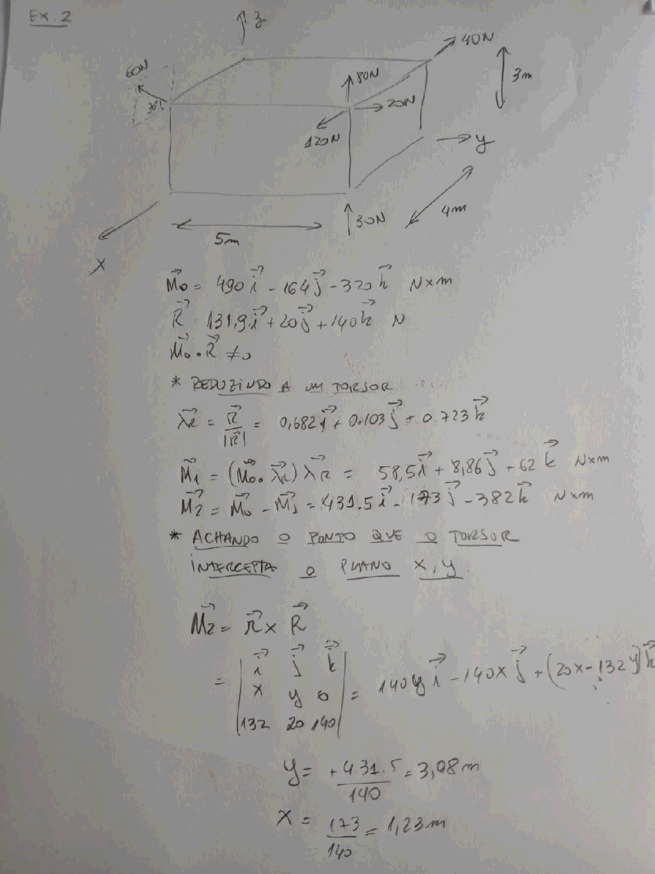 Ex. 2
z
40N
60N
30°
80N
20N
120N
3m
y
4m
30N
5m
x
M⃗o = 490 i⃗ - 164 j⃗ - 320 k⃗ N×m
R⃗ = 131,9 i⃗ + 20 j⃗ + 140 k⃗ N
M⃗o • R⃗ ≠ 0
* REDUZINDO A UM TORSOR
λ⃗R = R⃗/|R⃗| = 0,682 i⃗ + 0.103 j⃗ + 0.723 k⃗
M⃗1 = (M⃗o • λ⃗R) λ⃗R = 58,5 i⃗ + 8,86 j⃗ + 62 k⃗ N×m
M⃗2 = M⃗o - M⃗1 = 431.5 i⃗ - 173 j⃗ - 382 k⃗ N×m
* ACHANDO O PONTO QUE O TORSOR
INTERCEPTA O PLANO X,Y
M⃗2 = r⃗ × R⃗
= | i⃗ j⃗ k⃗ |
| x y 0 | = 140y i⃗ - 140x j⃗ + (20x - 132y) k⃗
| 132 20 140 |
y = +431.5/140 = 3,08m
x = 173/140 = 1,23m